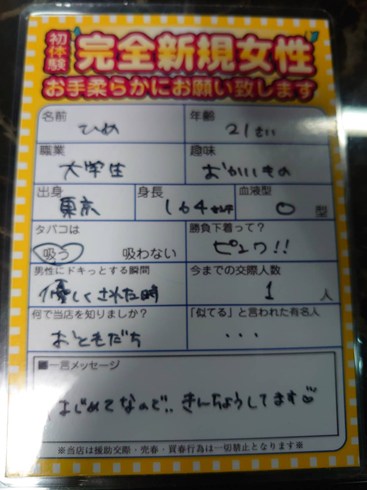 初体験 完全新規女性
お手柔らかにお願い致します
名前 年齢
ひめ 21さい
職業 趣味
大学生 おかいもの
出身 身長 血液型
東京 164センチ O型
タバコは 勝負下着って?
吸う 吸わない ピンク!!
男性にドキっとする瞬間 今までの交際人数
優しくされた時 1人
何で当店を知りましたか? 「似てる」と言われた有名人
おともだち ・・・
■一言メッセージ
はじめてなので.. きんちょうしてます
※当店は援助交際・売春・買春行為は一切禁止となります※